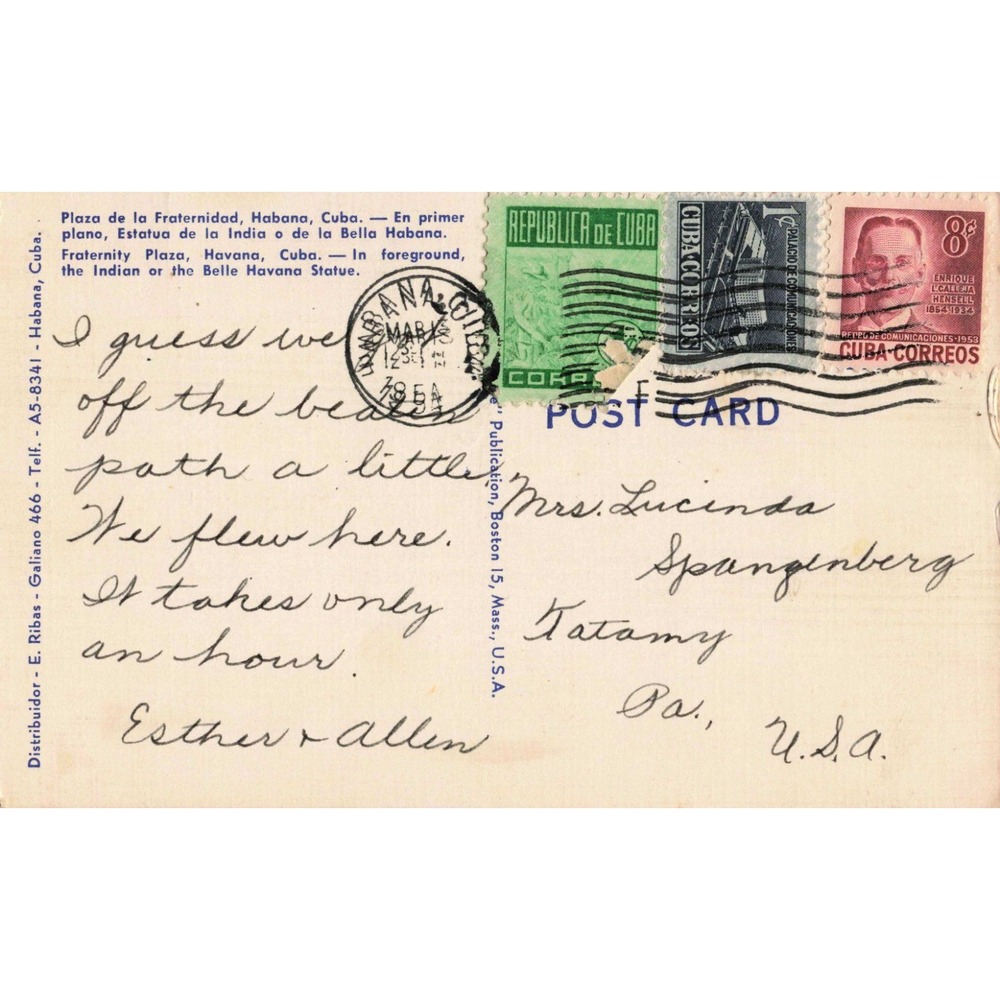 Plaza de la Fraternidad, Habana, Cuba. — En primer
plano, Estatua de la India o de la Bella Habana.
Fraternity Plaza, Havana, Cuba. — In foreground,
the Indian or the Belle Havana Statue.
I guess we
off the beaten
path a little.
We flew here.
It takes only
an hour.
Esther + Allen
Distribuidor - E. Ribas - Galiano 466 - Telf. - A5-8341 - Habana, Cuba.
Publication, Boston 15, Mass., U.S.A.
HABANA, CUBA
MAR
12
REPUBLICA DE CUBA
1¢
PALACIO DE COMUNICACIONES
CUBA CORREOS
8¢
ENRIQUE
CALLEJA
HENSELL
1854-1934
DE COMUNICACIONES-1953
CUBA-CORREOS
POST CARD
Mrs. Lucinda
Spangenberg
Tatamy
Pa.,
U.S.A.